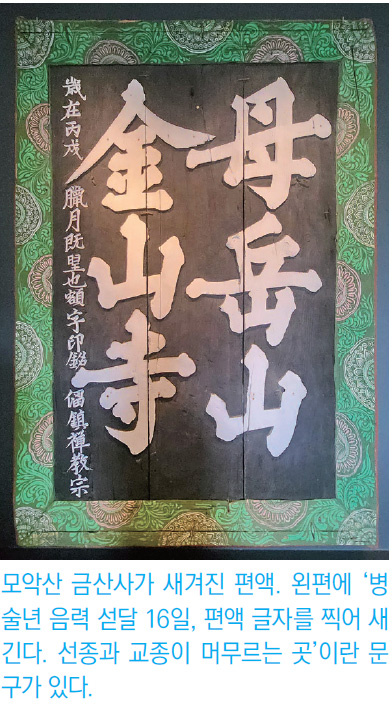 母岳山
金山寺
歲在丙戌 臘月旣望也額字印銘 偪鎮禪教宗
모악산 금산사가 새겨진 편액. 왼편에 ‘병
술년 음력 섣달 16일, 편액 글자를 찍어 새
긴다. 선종과 교종이 머무르는 곳’이란 문
구가 있다.